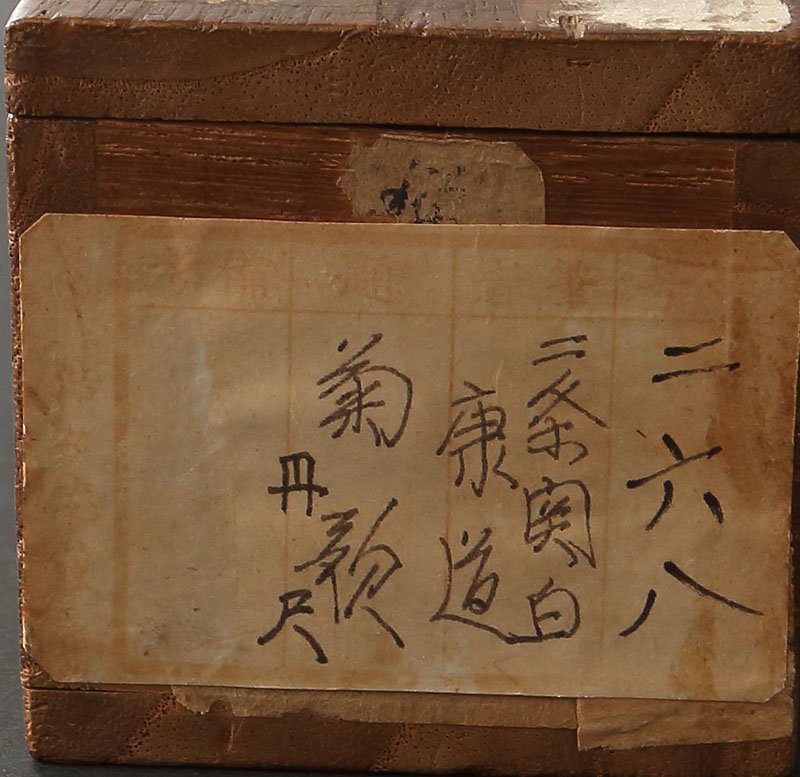 二六八
二条関白
康道
菊
冊尺